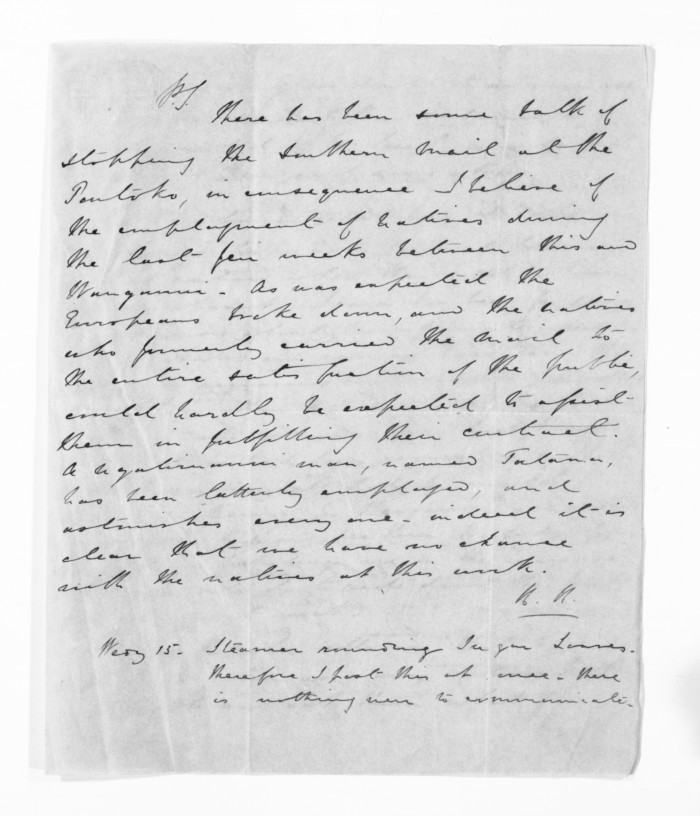 P.S.
There has been some talk of
stopping the Southern Mail at the
in consequence I believe of
the employment of natives during
the last few weeks between this and
Wanganui - As was expected the
Europeans broke down, and the natives
who formerly carried the mail to
the entire satisfaction of the public,
could hardly be expected to assist
them in fulfilling their contract.
A ngatiruanui man, named
has been latterly employed, and
astonishes every one - indeed it is
clear that we have no chance
with the natives at this work.
Wedy 15 - Steamer rounding Sugar Loaves -
therefore I post this at once - there
is nothing new to communicate -